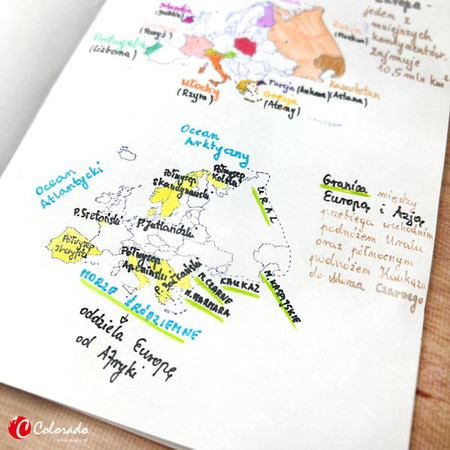 Europa -
jeden z
mniejszych
kontynentów.
Zajmuje
10,5 mln km²
Irlandia
(Dublin)
(Paryż)
Portugalia
(Lizbona)
Włochy
(Rzym)
Rosja
(Moskwa)
Kazachstan
Turcja (Ankara)(Astana)
Grecja
(Ateny)
Ocean
Arktyczny
Ocean
Atlantycki
Półwysep
Skandynawski
Półwysep
Kolski
URAL
P. Bretoński
P. Jutlandzki
Półwysep
Iberyjski
Półwysep
Apeniński
P. Bałkański
M. CZARNE
M. MARMARA
KAUKAZ
M. KASPIJSKIE
MORZE ŚRÓDZIEMNE
oddziela Europę
od Afryki
Granica między
Europą i Azją
przebiega wschodnim
podnóżem Uralu
oraz północnym
podnóżem Kaukazu
do Morza Czarnego
Colorado